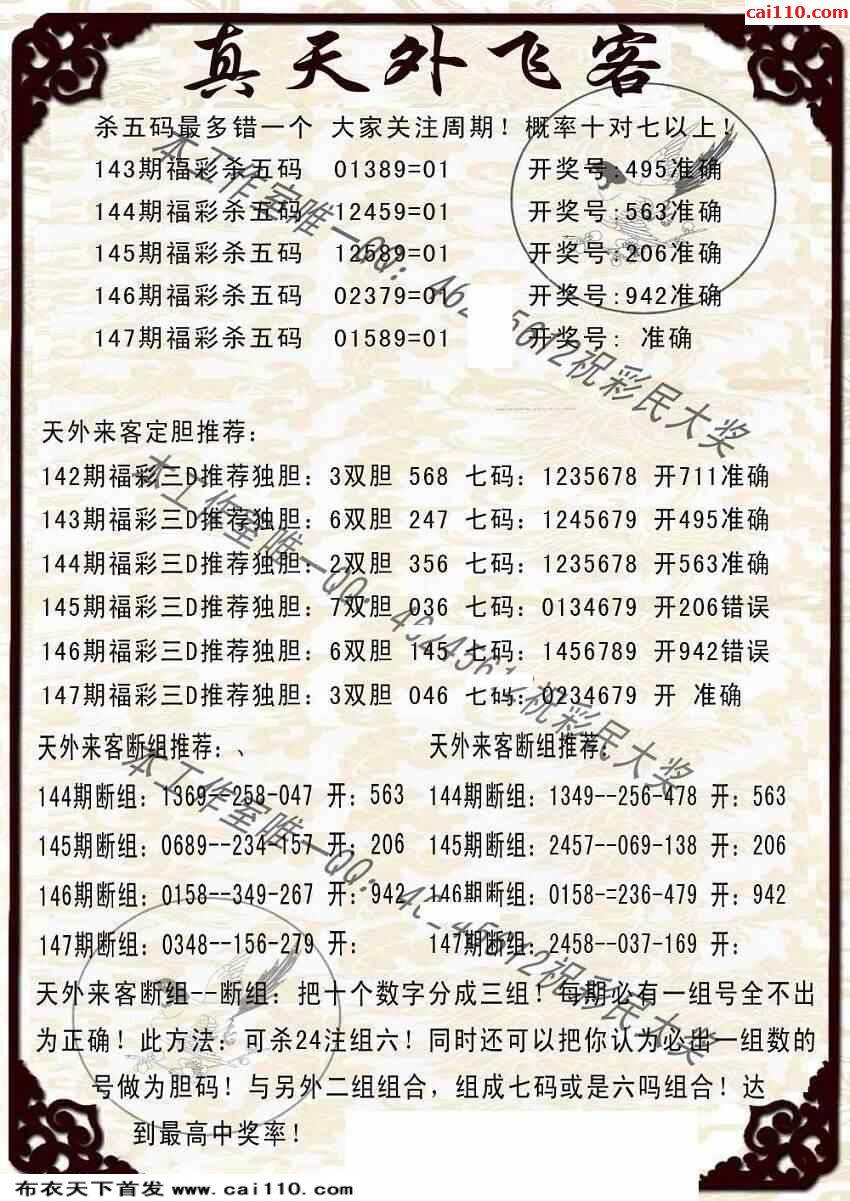 cai110.com
真天外飞客
杀五码最多错一个 大家关注周期！概率十对七以上！
143期福彩杀五码 01389=01 开奖号:495准确
144期福彩杀五码 12459=01 开奖号:563准确
145期福彩杀五码 12589=01 开奖号:206准确
146期福彩杀五码 02379=01 开奖号:942准确
147期福彩杀五码 01589=01 开奖号: 准确
天外来客定胆推荐：
142期福彩三D推荐独胆：3双胆 568 七码：1235678 开711准确
143期福彩三D推荐独胆：6双胆 247 七码：1245679 开495准确
144期福彩三D推荐独胆：2双胆 356 七码：1235678 开563准确
145期福彩三D推荐独胆：7双胆 036 七码：0134679 开206错误
146期福彩三D推荐独胆：6双胆 145 七码：1456789 开942错误
147期福彩三D推荐独胆：3双胆 046 七码：0234679 开 准确
天外来客断组推荐：、 天外来客断组推荐：
144期断组：1369--258-047 开：563 144期断组：1349--256-478 开：563
145期断组：0689--234-157 开：206 145期断组：2457--069-138 开：206
146期断组：0158--349-267 开：942 146期断组：0158-=236-479 开：942
147期断组：0348--156-279 开： 147期断组：2458--037-169 开：
天外来客断组--断组：把十个数字分成三组！每期必有一组号全不出
为正确！此方法：可杀24注组六！同时还可以把你认为必出一组数的
号做为胆码！与另外二组组合，组成七码或是六吗组合！达
到最高中奖率！
本工作室唯一QQ：
祝彩民大奖
本工作室唯一QQ：
祝彩民大奖
本工作室唯一QQ：
祝彩民大奖
布衣天下首发 www.cai110.com